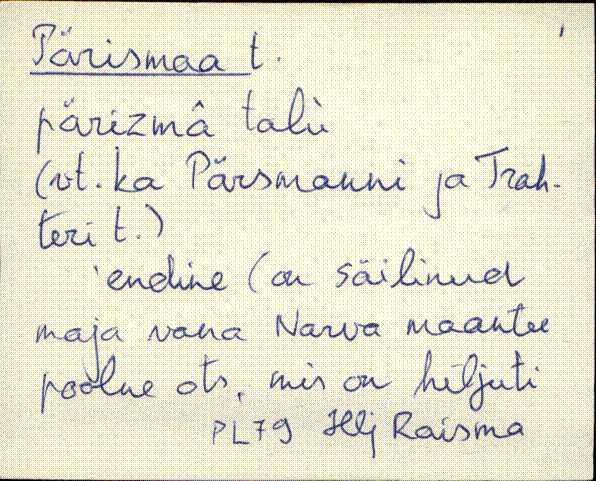 Pärismaa t.
pärizmâ talù
(vt. ka Pärsmanni ja Trah-
teri t.)
'endine (on säilinud
maja vana Narva maantee
poolne ots, mis on hiljuti
PL79 Hlj Raisma